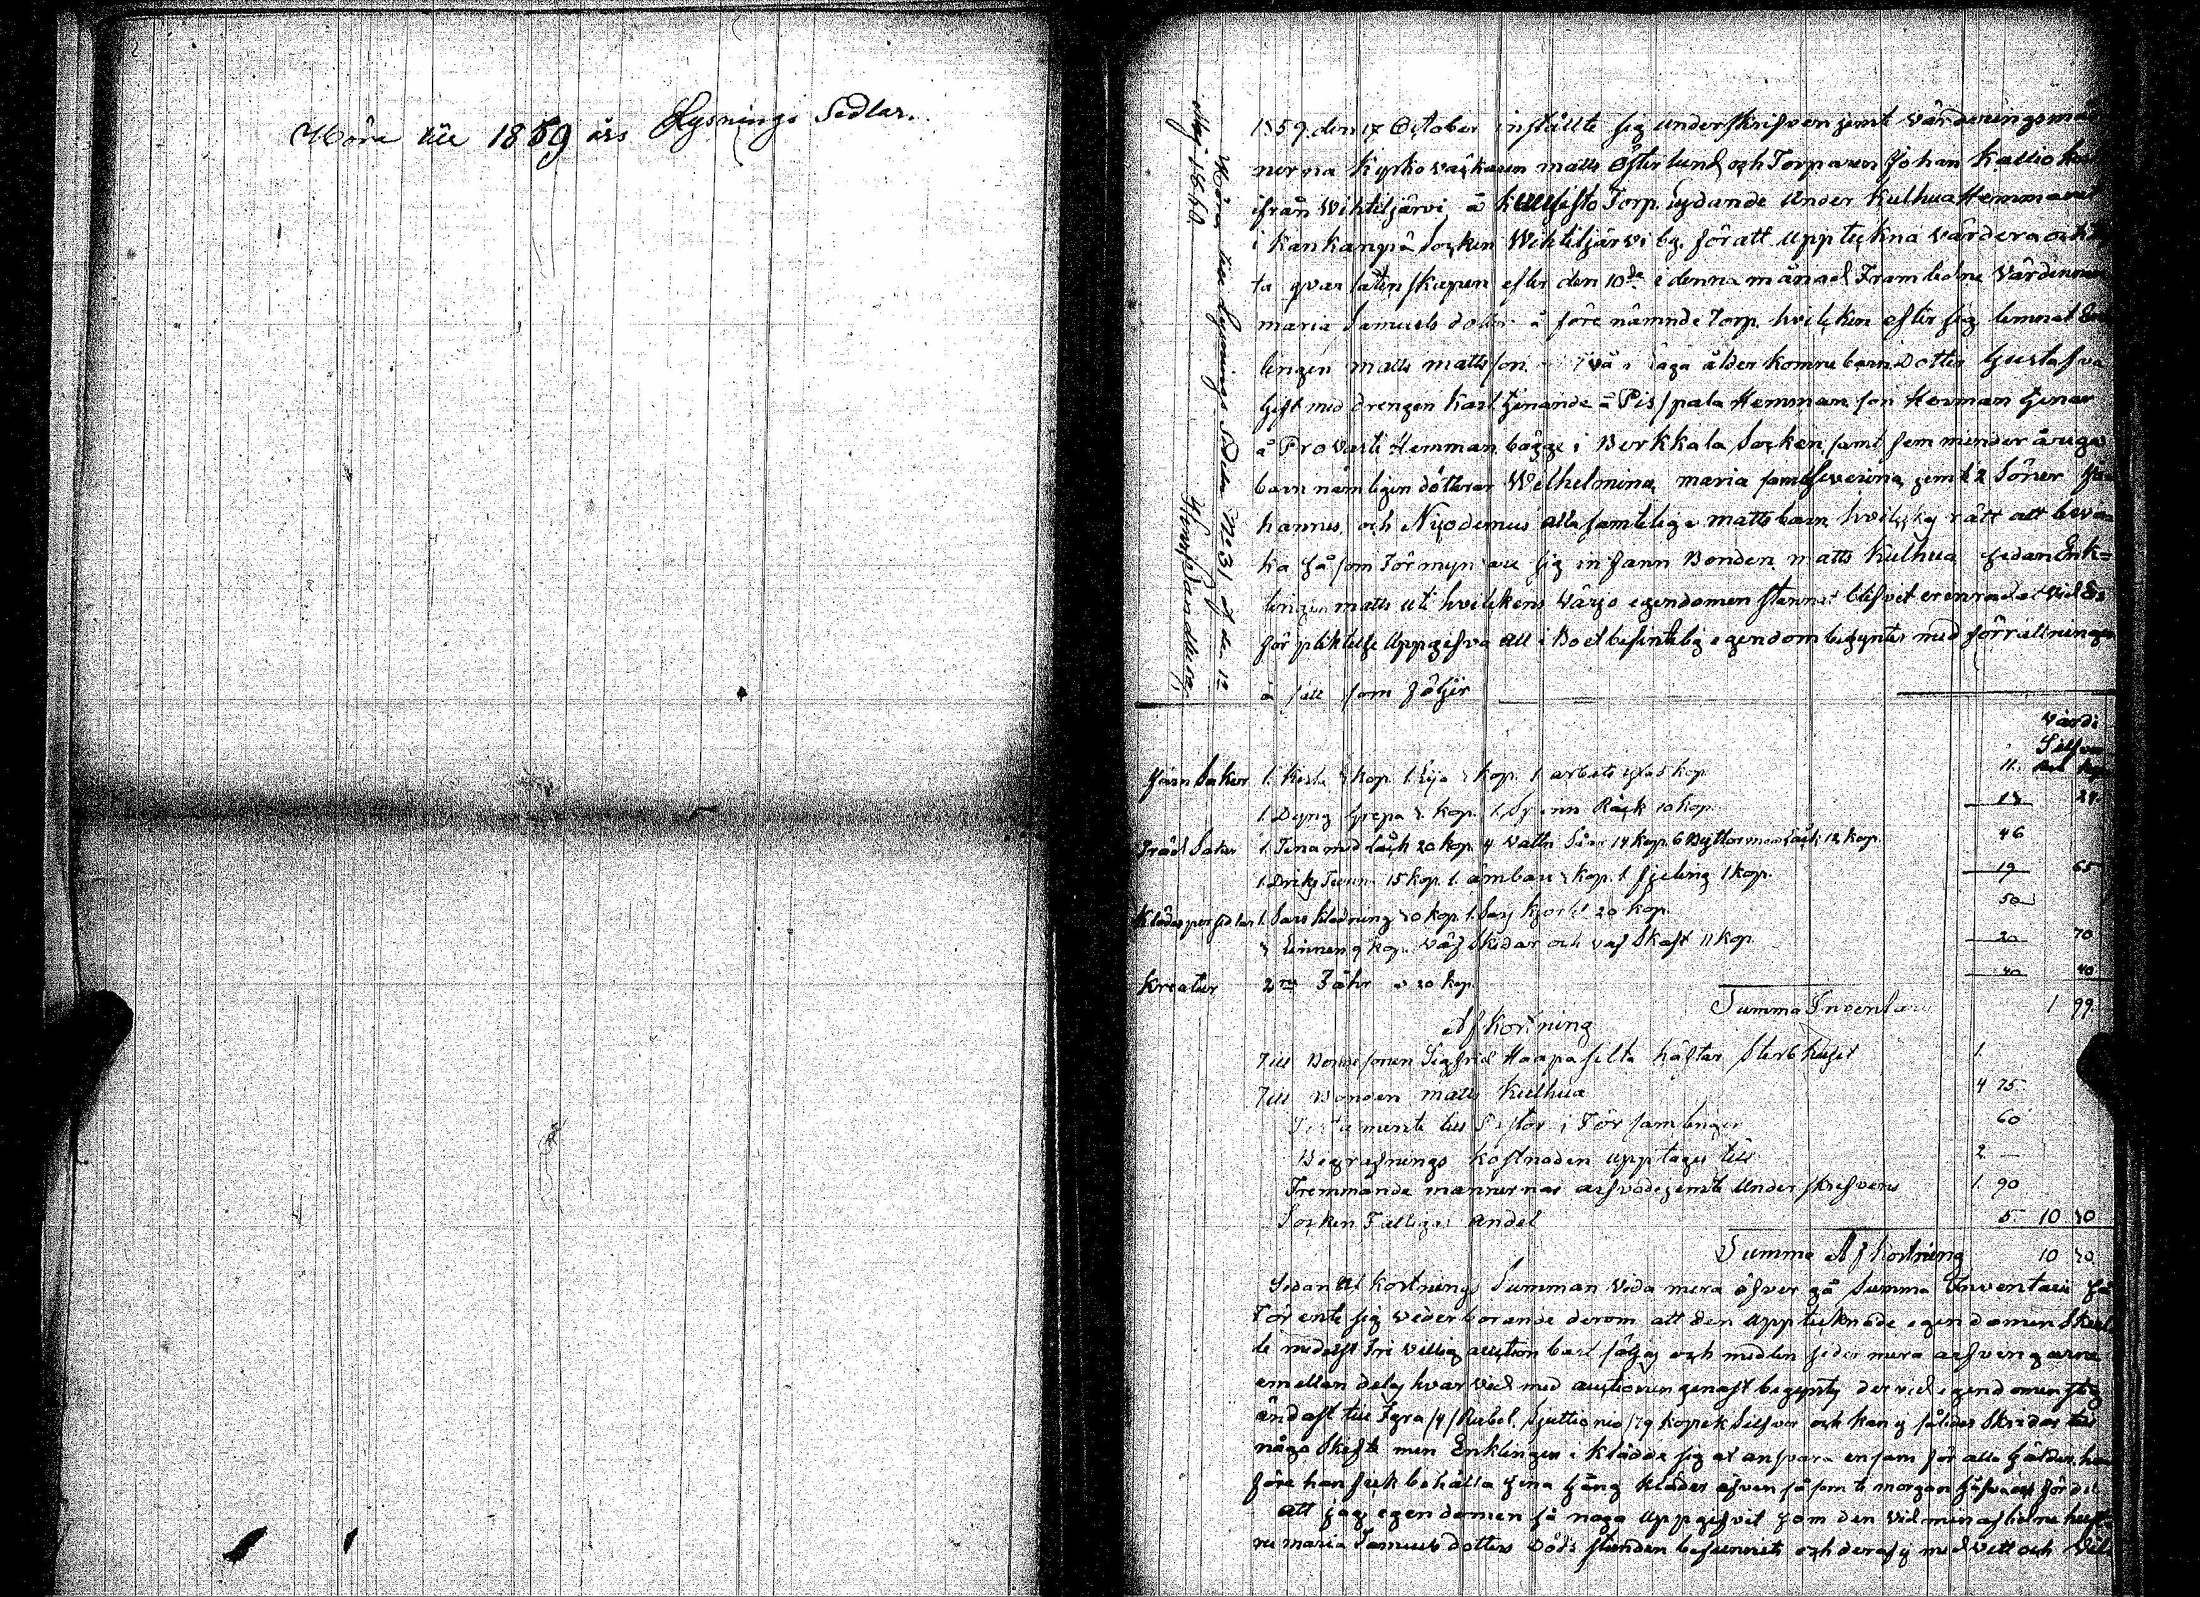 Höra till 1859 års Lysnings Sedlar.
Höra till Lysnings Sedeln No 31 af den 12
Maj 1860 Henr Sandberg
1859. den 17 October instälte sig underskrifven jemt värderingsmän
nerna Kyrkovägtaren matts Österlund och Torparen Johan Kallio
ifrån Wihteljärvi å Kuusisto Torp. lydande Under Kulhua Hemman
i Kankanpä Socken Wihteljärvi by. för att upptekna värdera och
ta qvarlåtenskapen efter den 10de i denna månad Framledne Värdinnan
maria Samuels dotter å förenämnde Torp. hvilcken efter sig lemnat Enk
lingen matts mattsson två i laga ålder komne barn Dotter Gustafva
Gift med drengen Karl tjenande å Pispala Hemman son Herman tjenar
å Provasti Hemman bägge i Berkkala Socken samt fem minder åriga
barn nämligen dötterar Wilhelmina, maria samt Severina jemt 2 Söner Jo
hannes, och Nicodemus alla samtelige matts barn hvilckas rätt att beva
ka så som Förmyn are sig infann Bonden matts Kulhua sedan Enk=
lingen matts uti hvilckens värjo egendomen stannat blifvit erinrad at vid Eds
förpliktelse Uppgifva all i Boet befintelig egendom begyntes med förrättningen
å sätt som följer
Värde
Silfver
Rub Kop
Järn Saker 1. Kista kop. 1. Lija kop. 1 arbets yxa 5 kop 11.
1 Dyng Grepa kop. 1. Spinn Råck 10 kop. 13 24.
Träd Saker 1. Tina med Låck 20 kop. 4 Vattn Såar 14 kop. 6 Byttor med Låck 12 kop. 46
1. Dricks Tunna 15 kop. 1. ämbare kop. 1. Fjeling 1 kop. 19 65
Klädes persedlar 1. Sars kledning 30 kop. 1. Sarj kjortel 20 kop. 50
Linnen 9 kop. Väf Skedar och väf Skaft 11 kop 20 70
Kreatur 2ne Fåhr à 20 kop. 40 40
Summa Inventari 1 99.
Afkortning
Till Bonde sonen Sigfrid Haapasilta häftar Sterbhuset 1.
Till Bonden matts Kulhua 4 75
Testamente till Fattiga i Församlingen 60
Begrafnings kostnaden upptages till 2 —
Fremmande mannernas arfvode jemte Underskrifvens 1. 90
Socken Fattigas andel 5. 10 30
Summa Afkortning 10 30
Sedan Afkortnings Summan vida mera öfver gå Summa Inventari så
Förente sig vederborande derom att den Upptecknade egendomen Skulle
medelst Fri villig auction bort säljas och medlen sedermera arfvingarne
emellan delas hvar ved med auctionen genast begyntes der ved egendomen steg
ändast till Fyra /4/ Rubel Sjuttio nio /79 kopek Silfver och kan ej således Skridas till
någo Skifte men Enklingen i klädde sig at ansvara ensam för alla Gälden, hvar
före han feck behålla sina Gång kläder äfven så som ti morgon gåfvans fördel
att jag egendomen så noga uppgifvit som den vid min aflidne hust
ru maria Samuels dotters döds stunden befunnits och deraf ej med Vett och Vilja